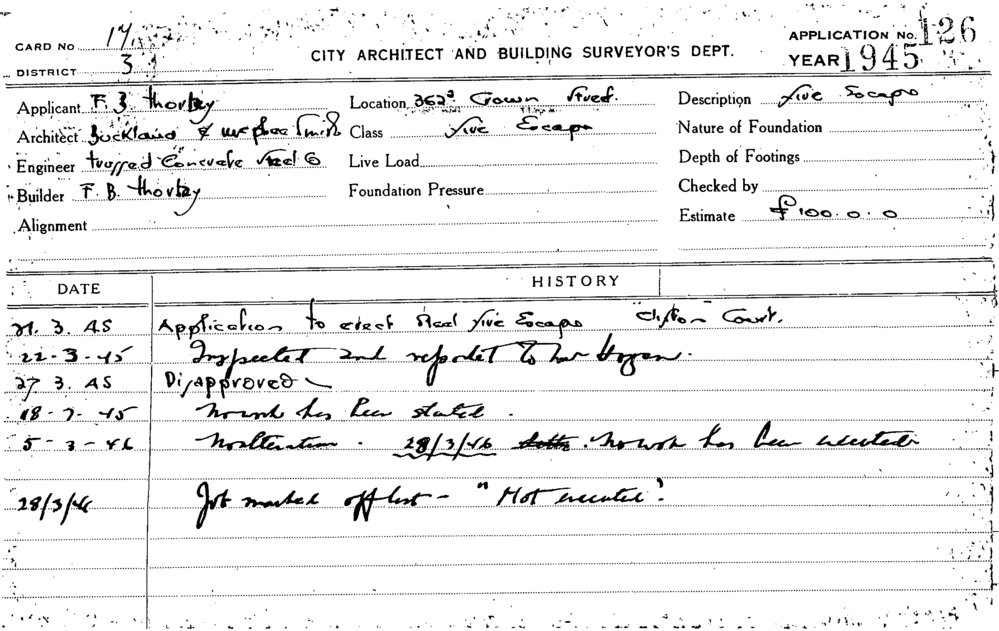 CARD No 14
DISTRICT 3
CITY ARCHITECT AND BUILDING SURVEYOR'S DEPT.
APPLICATION No. 126
YEAR 1945
Applicant F. B. Thorley
Location 362 Crown Street.
Description Fire Escape
Architect Buckland & Smith
Class Fire Escape
Nature of Foundation
Engineer Trussed Concrete Steel Co
Live Load
Depth of Footings
Builder F. B. Thorley
Foundation Pressure
Checked by
Alignment
Estimate £100.0.0
DATE HISTORY
21. 3. 45 Application to erect Steel Fire Escape Clifton Court.
22-3-45 Inspected and reported to Mr Hogan.
27 3. 45 Disapproved
18-7-45 No work has been started.
5-3-46 No alteration. 28/3/46 No work has been executed
28/3/46 Job marked off list - "Not executed".